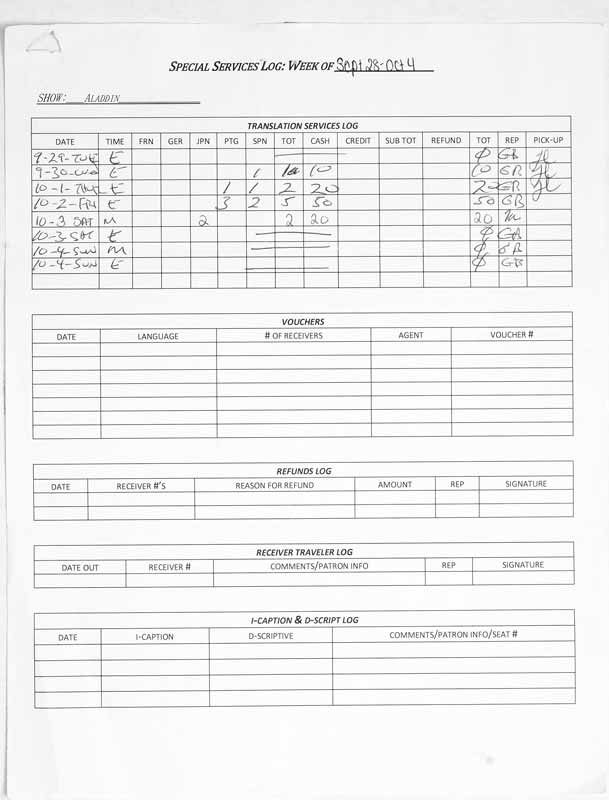 SPECIAL SERVICES LOG: WEEK OF Sept 28-Oct 4
SHOW: ALADDIN
TRANSLATION SERVICES LOG
DATE TIME FRN GER JPN PTG SPN TOT CASH CREDIT SUB TOT REFUND TOT REP PICK-UP
9-29-TUE E Ø GB
9-30-WED E 1 10 10 GB
10-1-THUR E 1 1 2 20 20 GB
10-2-FRI E 3 2 5 50 50 GB
10-3 SAT M 2 2 20 20
10-3-SAT E Ø GB
10-4-SUN M Ø GB
10-4-SUN E Ø GB
VOUCHERS
DATE LANGUAGE # OF RECEIVERS AGENT VOUCHER #
REFUNDS LOG
DATE RECEIVER #'S REASON FOR REFUND AMOUNT REP SIGNATURE
RECEIVER TRAVELER LOG
DATE OUT RECEIVER # COMMENTS/PATRON INFO REP SIGNATURE
I-CAPTION & D-SCRIPT LOG
DATE I-CAPTION D-SCRIPTIVE COMMENTS/PATRON INFO/SEAT #